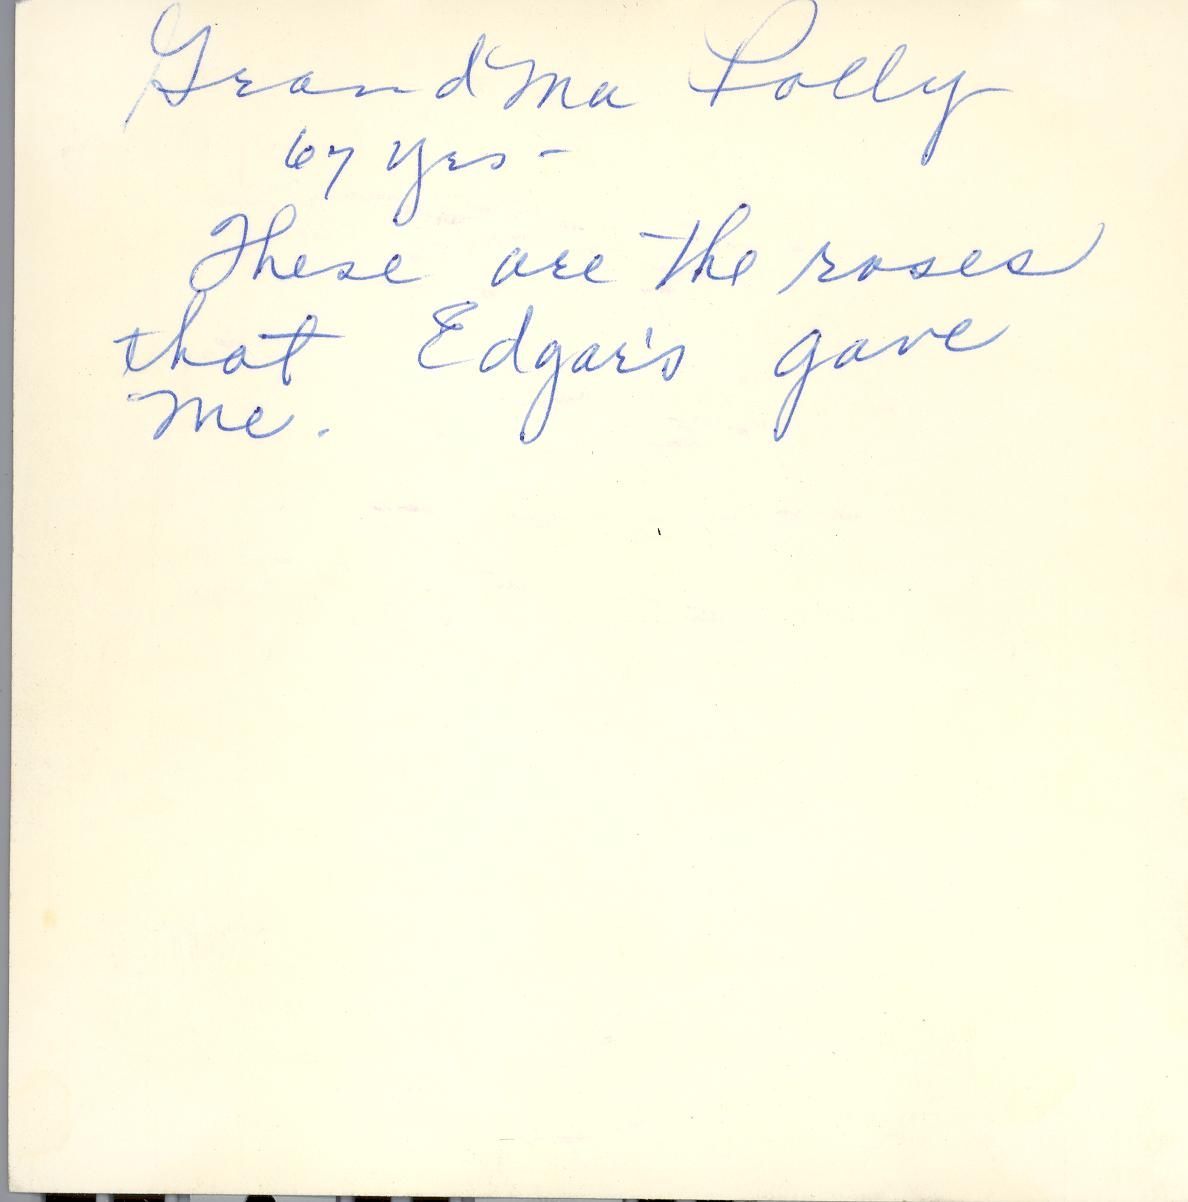 GrandMa Polly
67 yrs-
These are the roses
that Edgar's gave
me.